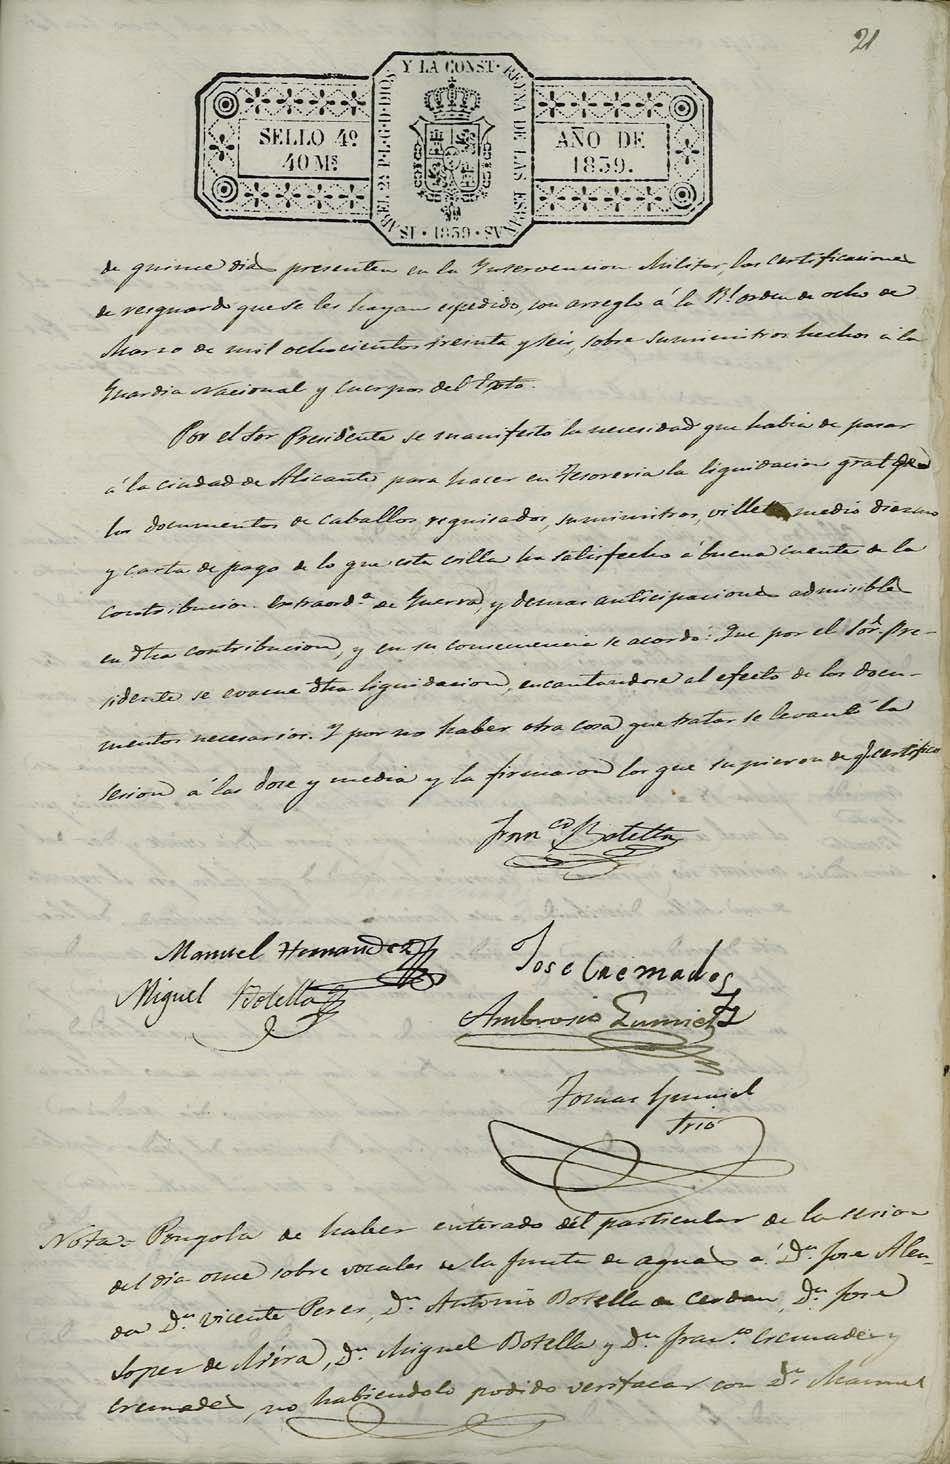 21
Y LA CONST. REYNA DE LAS ESPAÑAS
ISABEL 2ª P.L.G.D.DIOS
SELLO 4º
40 Ms
AÑO DE
1839.
1839
de quince dias presenten en la Intervencion Militar, las certificaciones
de resguardo que se les hayan espedido, con arreglo á la Rl orden de ocho de
Marzo de mil ochocientos treinta y seis, sobre suministros hechos á la
Guardia Nacional y cuerpos del Exto.
Por el Sor Presidente se manifesto la necesidad que habia de pasar
á la ciudad de Alicante para hacer en Tesoreria la liquidacion gral de
los documentos de caballos requisados, suministros, villetes medio diezmo
y carta de pago de lo que esta villa ha satisfecho á buena cuenta de la
contribucion extraorda de Guerra, y demas anticipaciones admisibles
en dha contribucion, y en su consecuencia se acordó: Que por el Sor Pre-
sidente se evacue dha liquidacion, encantandose al efecto de los docu-
mentos necesarios. Y por no haber otra cosa que tratar se levantó la
sesion á las doce y media y la firmaron los que supieron de q. certifico
Franco Botella
Manuel Hernandez
Jose Cremades
Miguel Botella
Ambrosio Gumiel
Tomas Gumiel
Srio
Nota = Pongola de haber enterado del particular de la sesion
del dia once sobre vocales de la junta de aguas á Dn Jose Alen-
da Dn Vicente Peres, Dn Antonio Botella de Cerdan, Dn Jose
Lopez de Mira, Dn Miguel Botella y Dn Franco Cremades y
Cremades, no habiendolo podido verificar con Dn Manuel